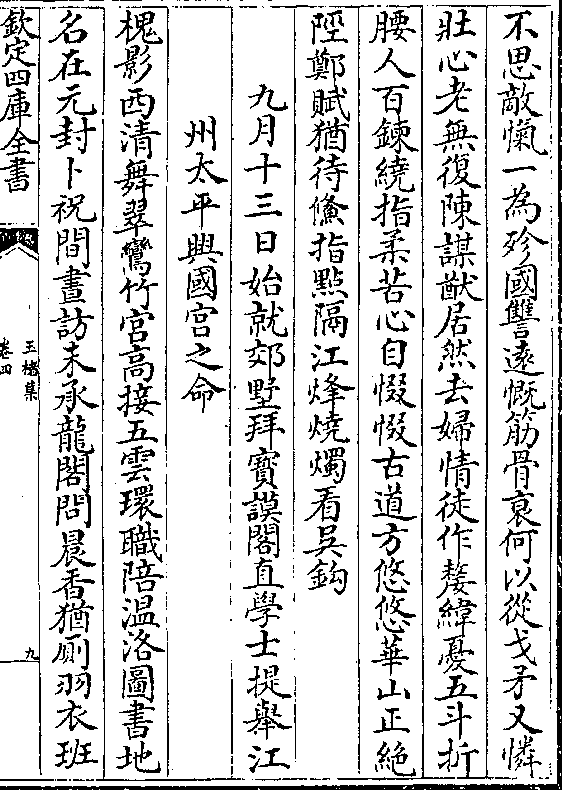 不思敵愾一為殄國讐遠慨筋骨衰何以從戈矛又憐
壯心老無復陳謀猷居然去婦情徒作嫠緯憂五斗折
腰人百鍊繞指柔苦心自惙惙古道方悠悠華山正絶
陘鄭賦猶待僉指點隔江烽燒燭看吳鈎
九月十三日始就郊墅拜寳謨閣直學士提舉江
州太平興國宫之命
槐影西清舞翠鸞竹宫高接五雲環職陪温洛圖書地
名在元封卜祝間晝訪未承龍閣問晨香猶厠羽衣班
欽定四庫全書
玉楮集
卷四
九